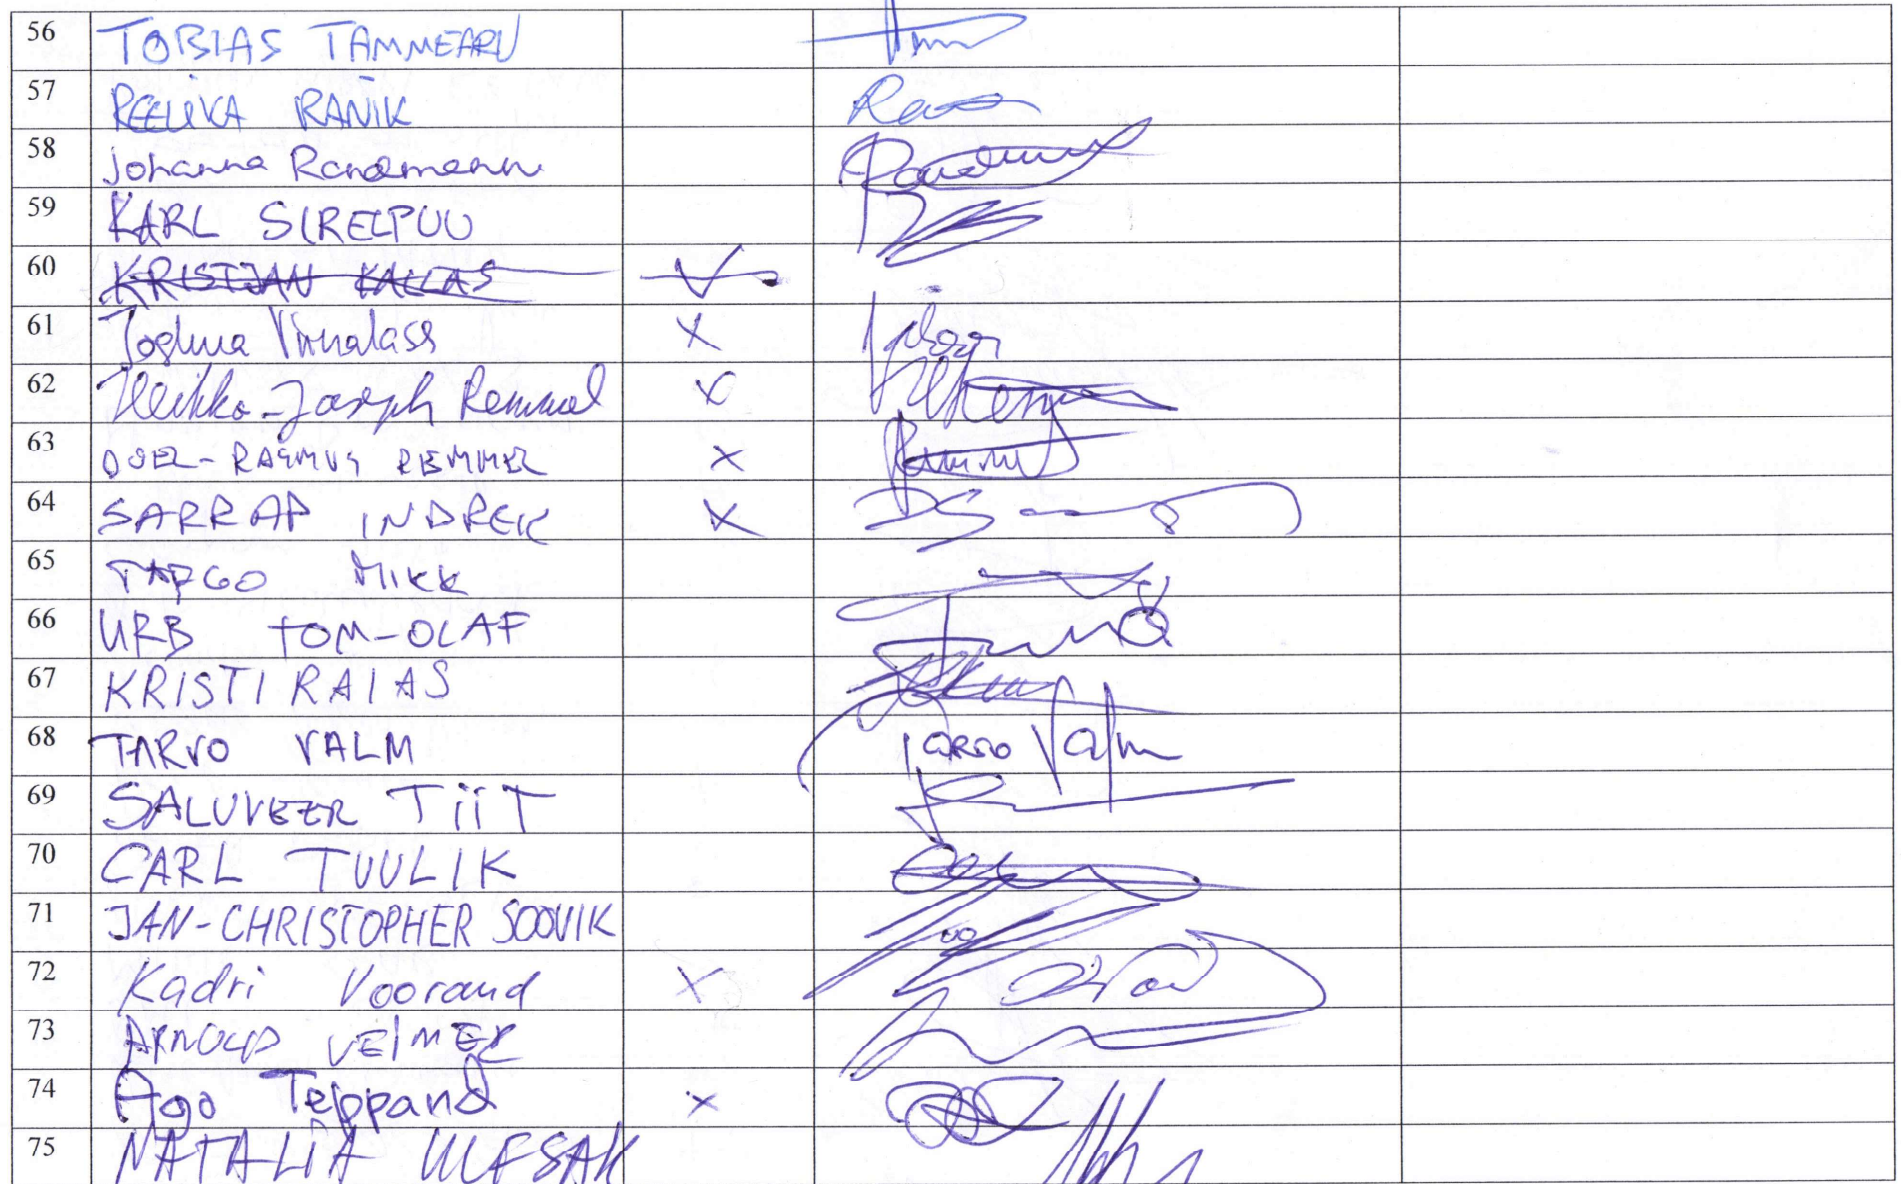 56 TOBIAS TAMMEARU
57 REELIKA RANIK
58 Johanna Randmann
59 KARL SIRELPUU
60 KRISTJAN KALLAS
61 Joshua Virkalass X
62 Heikko-Joseph Remmel X
63 JOEL-RASMUS REMMEL X
64 SARRAP INDREK X
65 TARGO MIKK
66 URB TOM-OLAF
67 KRISTI RAIAS
68 TARVO VALM Tarvo Valm
69 SALUVEER TIIT
70 CARL TUULIK
71 JAN-CHRISTOPHER SOOVIK
72 Kadri Voorand X
73 ARNOLD VELMER
74 Ago Teppand X
75 NATALIA